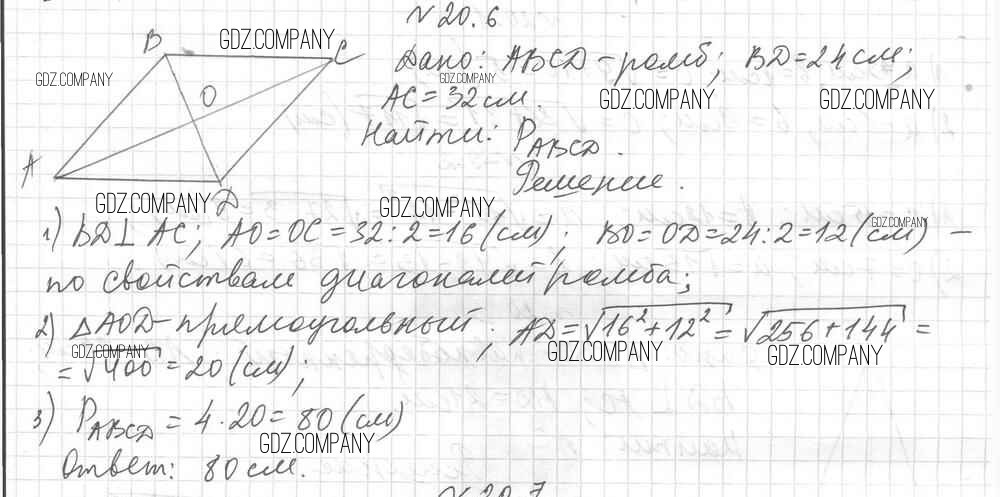 № 20.6
B C O A D
Дано: ABCD – ромб; BD = 24 см;
AC = 32 см.
Найти: P_ABCD.
Решение.
1) BD ⊥ AC; AO = OC = 32 : 2 = 16 (см); BO = OD = 24 : 2 = 12 (см) –
по свойствам диагоналей ромба;
2) △AOD – прямоугольный, AD = √(16² + 12²) = √(256 + 144) =
= √400 = 20 (см);
3) P_ABCD = 4 · 20 = 80 (см)
Ответ: 80 см.
№ 20.7
GDZ.COMPANY
GDZ.COMPANY
GDZ.COMPANY
GDZ.COMPANY
GDZ.COMPANY
GDZ.COMPANY
GDZ.COMPANY
GDZ.COMPANY
GDZ.COMPANY
GDZ.COMPANY
GDZ.COMPANY
GDZ.COMPANY